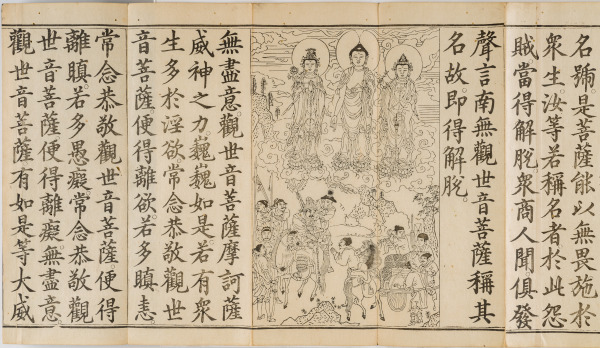 名號是菩薩能以無畏施於
眾生汝等若稱名者於此怨
賊當得解脫眾商人聞俱發
聲言南無觀世音菩薩稱其
名故即得解脫
無盡意觀世音菩薩摩訶薩
威神之力巍巍如是若有眾
生多於淫欲常念恭敬觀世
音菩薩便得離欲若多瞋恚
常念恭敬觀世音菩薩便得
離瞋若多愚癡常念恭敬觀
世音菩薩便得離癡無盡意
觀世音菩薩有如是等大威